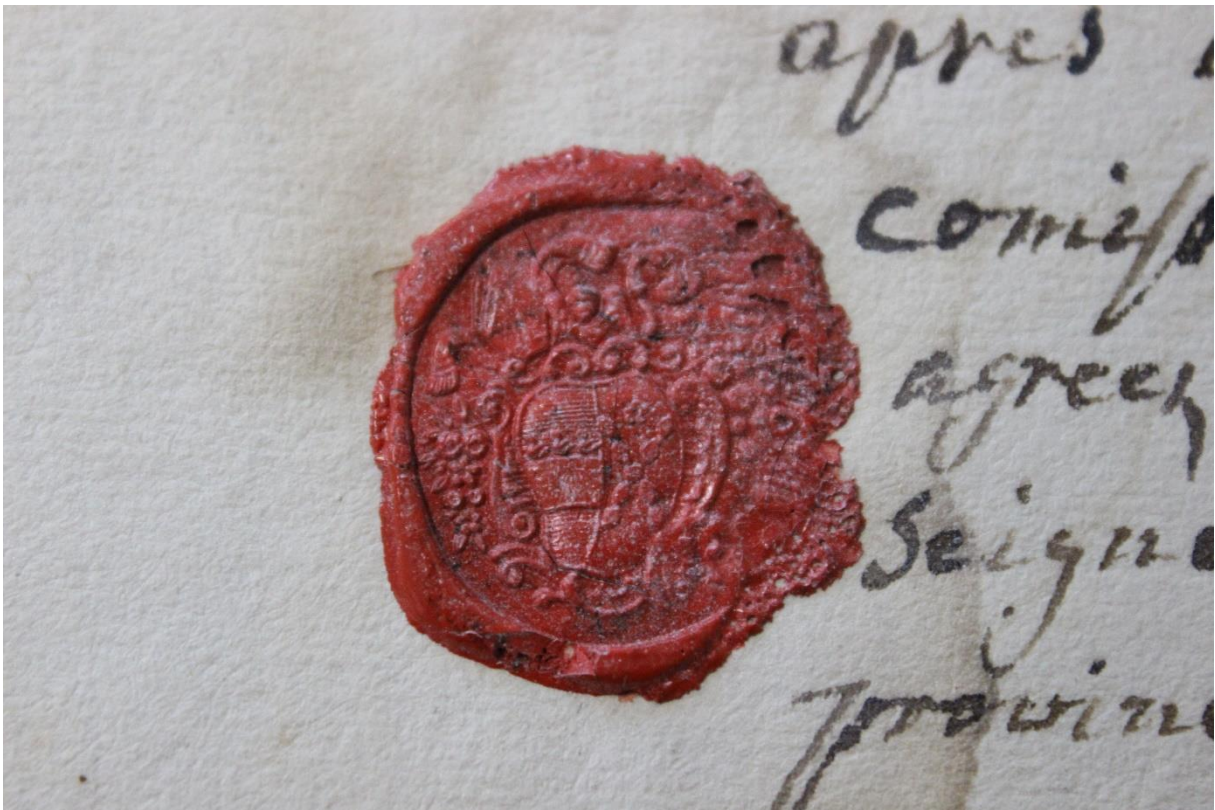 apres
comiſſ
agreez
Seigne
provinc